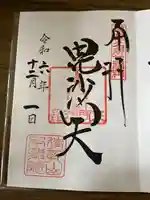 奉拝
毘沙門天
令和六年
十二月一日